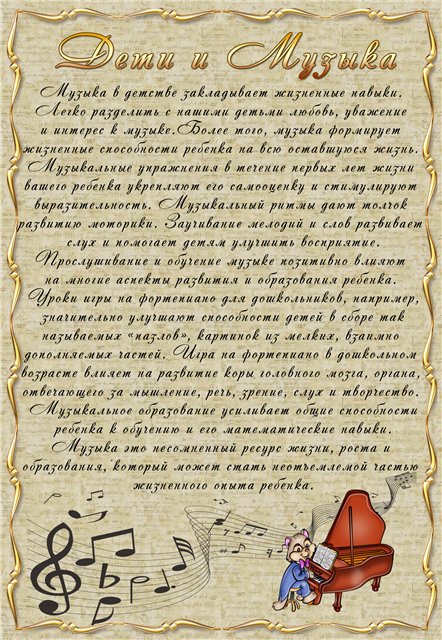 Дети и Музыка
Музыка в детстве закладывает жизненные навыки.
Легко разделить с нашими детьми любовь, уважение
и интерес к музыке.Более того, музыка формирует
жизненные способности ребенка на всю оставшуюся жизнь.
Музыкальные упражнения в течение первых лет жизни
вашего ребенка укрепляют его самооценку и стимулируют
выразительность. Музыкальный ритмы дают толчок
развитию моторики. Заучивание мелодий и слов развивает
слух и помогает детям улучшить восприятие.
Прослушивание и обучение музыке позитивно влияют
на многие аспекты развития и образования ребенка.
Уроки игры на фортепиано для дошкольников, например,
значительно улучшают способности детей в сборе так
называемых «пазлов», картинок из мелких, взаимно
дополняемых частей. Игра на фортепиано в дошкольном
возрасте влияет на развитие коры головного мозга, органа,
отвечающего за мышление, речь, зрение, слух и творчество.
Музыкальное образование усиливает общие способности
ребенка к обучению и его математические навыки.
Музыка это несомненный ресурс жизни, роста и
образования, который может стать неотъемлемой частью
жизненного опыта ребенка.